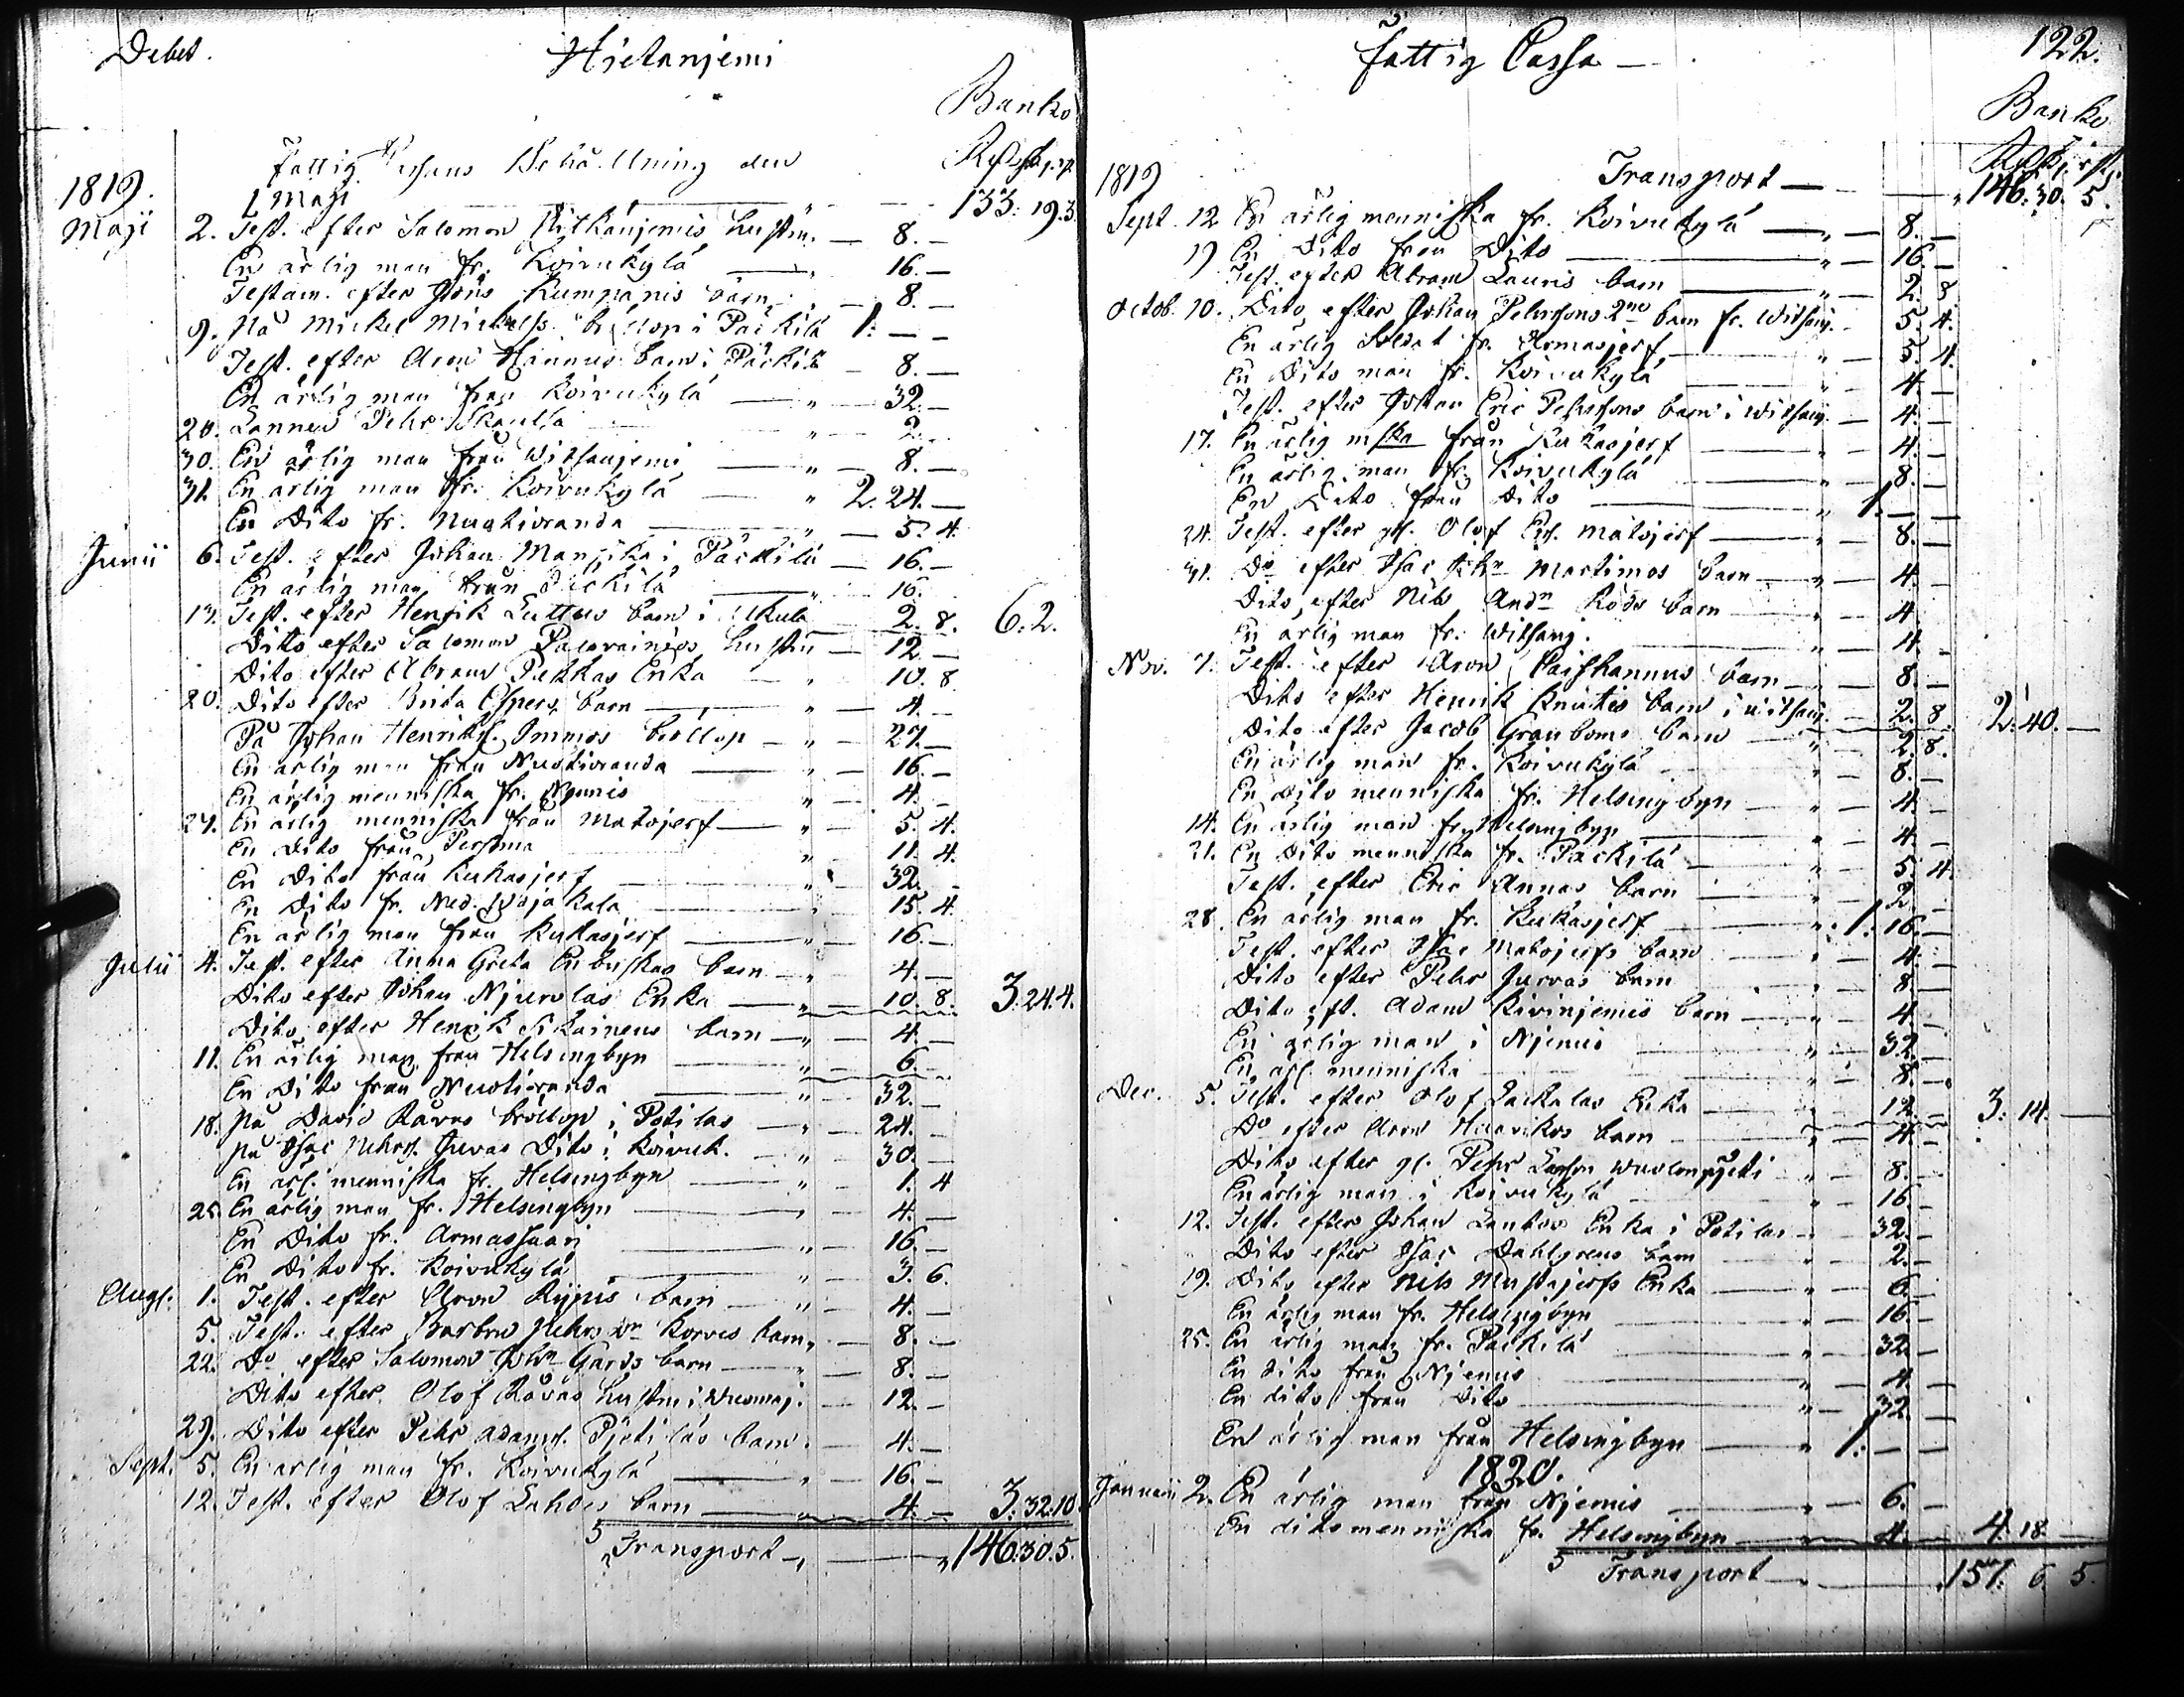 Debet. Hietanjemi
Banko
Fattig Cassans Behållning den Rd sk. r.
1819. 1 Maji 133: 19. 3.
Maji 2. Test. efter Salomon Pitkänjemis hustru — 8. —
En ärlig man fr. Koivukylä — 16. —
Testam. efter Jöns Rumpanis barn — 8. —
9. På Mickel Mickelss. bröllop i Päckilä 1: — —
Test. efter Aron Hannus barn i Päckilä — 8. —
En ärlig man från Koivukylä — 32. —
20. Länsm. Pehr — 2. —
30. En ärlig man från Witsanjemi — 8. —
31. En ärlig man fr. Koivukylä — 2. 24. —
En Dito fr. Nuotioranda — 5. 4.
Junii 6. Test. efter Johan Manjika i Päckilä — 16. —
En ärlig man från Päckilä — 16.
13. Test. efter Henrik Luttus barn i — 2. 8. 6: 2.
Dito efter Salomon Palovainios hustru — 12. —
Dito efter Abram Pekkas Enka — 10. 8.
20. Dito efter Brita Espers barn — 4. —
På Johan Henrikss. Immos bröllop — 27. —
En ärlig man från Nuotioranda — 16. —
En ärlig menniska fr. Njemis — 4. —
27. En ärlig menniska från Matojerf — 5. 4.
En Dito från — 11. 4.
En Dito från Kukasjerf — 32. —
En Dito fr. Ned. Wojakala — 15. 4.
En ärlig man från Kukasjerf — 16. —
Julii 4. Test. efter Anna Greta Enbuskas barn — 4. —
Dito efter Johan Njurolas Enka — 10. 8. 3: 24. 4.
Dito efter Henrik Sikainens barn — 4. —
11. En ärlig man från Helsingbyn — 6. —
En Dito från Nuotioranda — 32. —
18. På David Rävas bröllop i Potilas — 24. —
På Isac Pehrss. Juvas Dito i Koivuk. — 30. —
En ärl. menniska fr. Helsingbyn — 1. 4
25. En ärlig man fr. Helsingbyn — 4. —
En Dito fr. Armassaari — 16. —
En Dito fr. Koivukylä — 3. 6.
Aug. 1. Test. efter Aron Rypis barn — 4. —
5. Test. efter Barbro Pehrsdr. Korves barn — 8. —
22. Do efter Salomon John Gards barn — 8. —
Dito efter Olof Rävas hustru i Wuomaj. — 12. —
29. Dito efter Pehr Adamss. Pjetiläs barn — 4. —
Sept. 5. En ärlig man fr. Koivukylä — 16. —
12. Test. efter Olof Lahdes barn — 4. — 3: 32. 10.
Transport — 146: 30. 5.
Fattig Cassa — 122.
Banko
1819 Transport — 146: 30. 5.
Sept. 12 En ärlig menniska fr. Koivukylä — 8. —
19 En Dito från Dito — 16. —
Test. efter Abram Lauris barn — 2. 8
Octob. 10. Dito efter Johan Pehrssons 2ne barn fr. Witsanj. — 5. 4.
En ärlig Soldat fr. Armasjerf — 5. 4.
En Dito man fr. Koivukylä — 4. —
Test. efter Johan Eric Pehrssons barn i Witsanj. — 4. —
17. En ärlig mska från Kukasjerf — 4. —
En ärlig man fr. Koivukylä — 8. —
En Dito från Dito — 1. —
24. Test. efter gl. Olof Ers. Matojerf — 8. —
31. Do efter Isac John Martimos barn — 4. —
Dito efter Nils Andn Röds barn — 4. —
En ärlig man fr. Witsanj. — 4. —
Nov. 7. Test. efter Aron barn — 8. —
Dito efter Henrik Knutis barn i Witsanj. — 2. 8. 2: 40. —
Dito efter Jacob Granboms barn — 2. 8.
En ärlig man fr. Koivukylä — 8. —
En Dito menniska fr. Helsingbyn — 4. —
14. En ärlig man fr. Helsingbyn — 4. —
21. En Dito menniska fr. Päckilä — 5. 4.
Test. efter Eric Annas barn — 2. —
28. En ärlig man fr. Kukasjerf — 1: 16. —
Test. efter Isac Matojerfs barn — 4. —
Dito efter Pehr Juvas barn — 8. —
Dito eft. Adam Kivinjemis barn — 4. —
En ärlig man i Njemis — 32. —
En ärl. menniska — 8. —
Dec. 5. Test. efter Olof Lackalas Enka — 12. — 3: 14. —
Do efter Aron Huuvikos barn — 4. —
Dito efter gl. Pehr Larsson — 8. —
En ärlig man i Koivukylä — 16. —
12. Test. efter Johan Lantos Enka i Potilas — 32. —
Dito efter Isac Dahlgrens barn — 2. —
19. Dito efter Nils Mustajerfs Enka — 6. —
En ärlig man fr. Helsingbyn — 16. —
25. En ärlig man fr. Päckilä — 32. —
En dito från Njemis — 4. —
En dito från Dito — 32. —
En ärlig man från Helsingbyn — 1: — —
1820.
Januarii 2. En ärlig man från Njemis — 6. —
En dito menniska fr. Helsingbyn — 4. — 4. 18 —
Transport — 157. 6. 5.